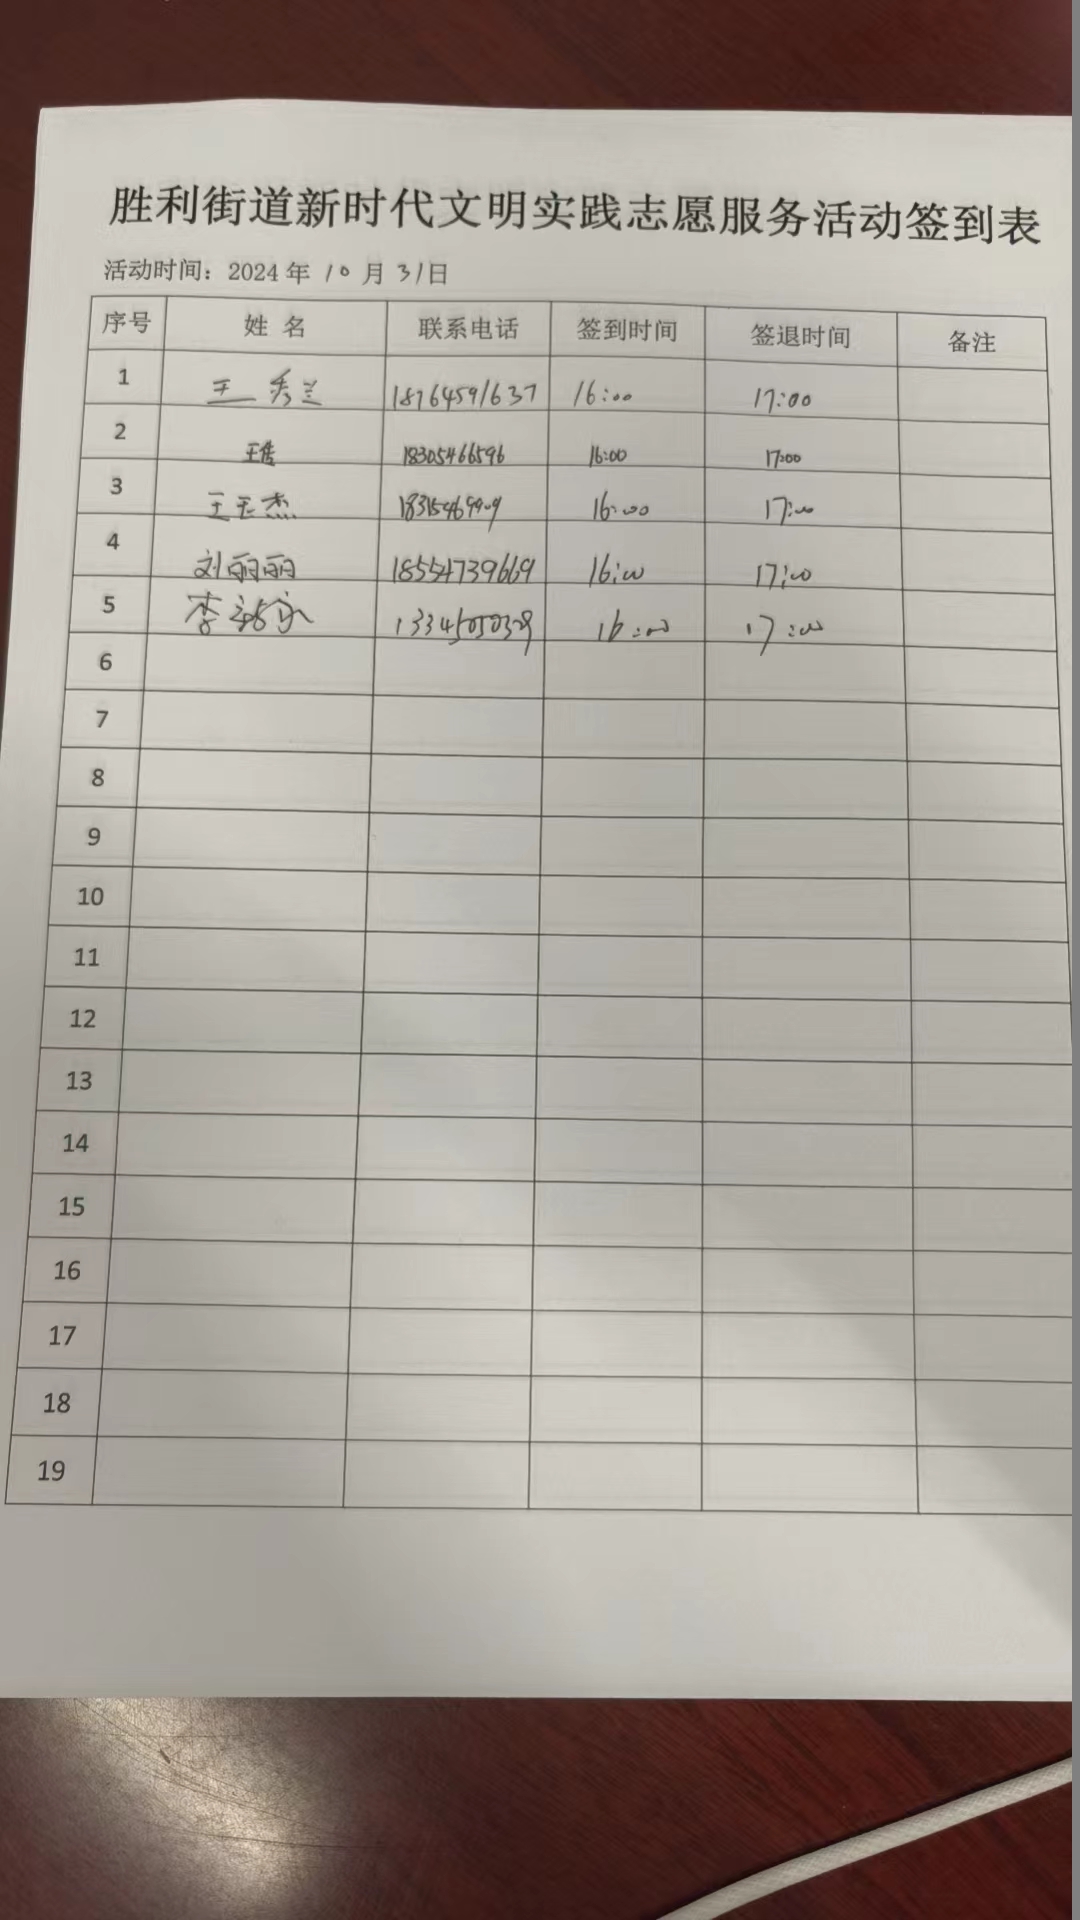 胜利街道新时代文明实践志愿服务活动签到表
活动时间：2024年10月31日
序号 姓名 联系电话 签到时间 签退时间 备注
1 王秀兰 18764591637 16:00 17:00
2 18305466596 16:00 17:00
3 王玉杰 16:00 17:00
4 刘丽丽 18554739669 16:00 17:00
5 李 16:00 17:00
6
7
8
9
10
11
12
13
14
15
16
17
18
19